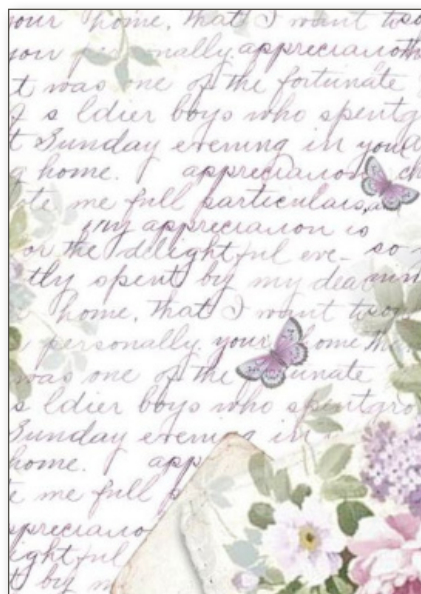 your home, that I want to so
you personally appreciation th
t was one of the fortunate
s ldier boys who spent g
t Sunday evening in your a
g home. I appreciation ch
ote me full particulars, a
my appreciation is
or the delightful eve- so
tly spent by my dear
home, that I want to so
personally your home the
was one of the unate
s ldier boys who spent gro
Sunday evening in
home. I app
te me full p
appreciatio
ightful
t by m